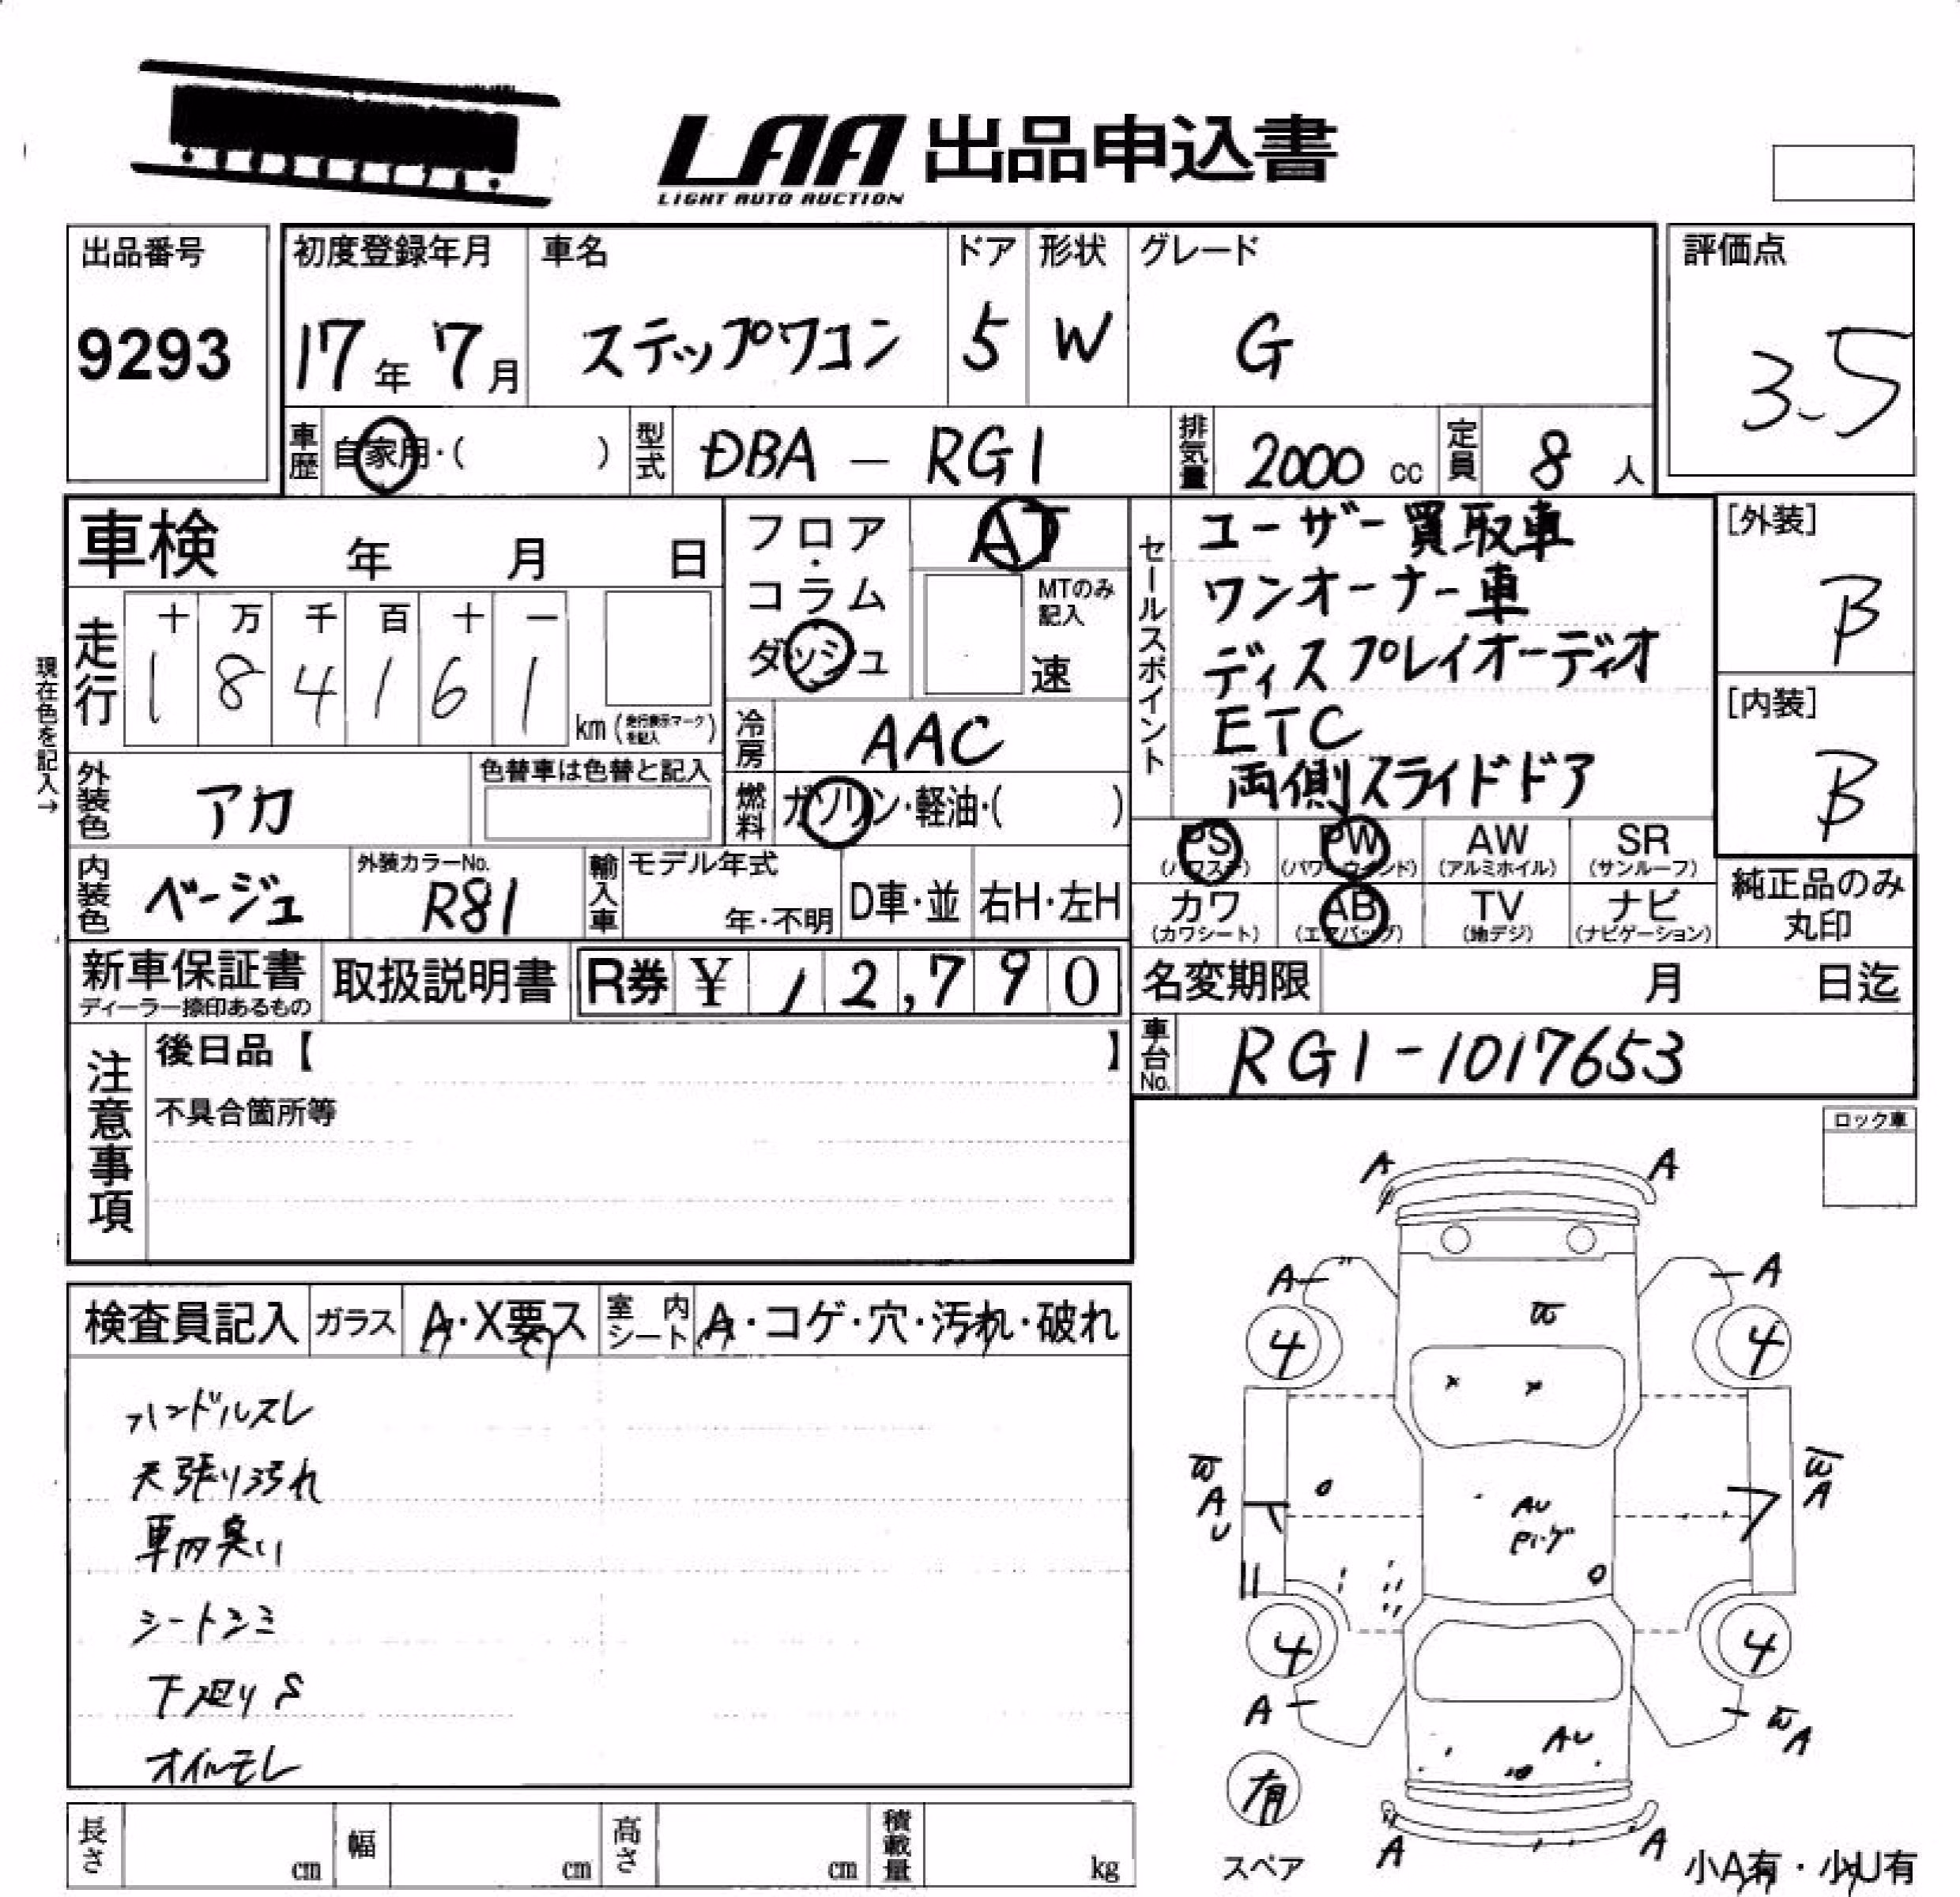 LAA 出品申込書
LIGHT AUTO AUCTION
出品番号
9293
初度登録年月
17年 7月
車名
ステップワゴン
ドア
5
形状
W
グレード
G
評価点
3.5
車歴 自家用・( )
型式 DBA - RG1
排気量 2000 cc
定員 8 人
車検 年 月 日
フロア・コラム
ダッシュ
AT
MTのみ記入
速
セールスポイント
ユーザー買取車
ワンオーナー車
ディスプレイオーディオ
ETC
両側スライドドア
[外装]
B
[内装]
B
現在色を記入→
走行 十 万 千 百 十 一
1 8 4 1 6 1
km (走行表示マークを記入)
冷房 AAC
燃料 ガソリン・軽油・( )
外装色 アカ
色替車は色替と記入
内装色 ベージュ
外装カラーNo.
R81
輸入車 モデル年式
年・不明
D車・並
右H・左H
PS (パワステ)
PW (パワーウィンド)
AW (アルミホイル)
SR (サンルーフ)
カワ (カワシート)
AB (エアバッグ)
TV (地デジ)
ナビ (ナビゲーション)
純正品のみ丸印
新車保証書
ディーラー捺印あるもの
取扱説明書
R券 ¥ 12,790
名変期限 月 日迄
車台No. RG1-1017653
注意事項
後日品【 】
不具合箇所等
ロック車
検査員記入
ガラス A・X要ス
室内シート A・コゲ・穴・汚れ・破れ
ハンドルスレ
天張り汚れ
車内臭い
シートシミ
下廻りS
オイルモレ
A A
A A
4 4
W
x x
W A U
AU
W A
4 4
A
W A
AU
有
スペア
A A
小A有・小U有
長さ cm
幅 cm
高さ cm
積載量 kg